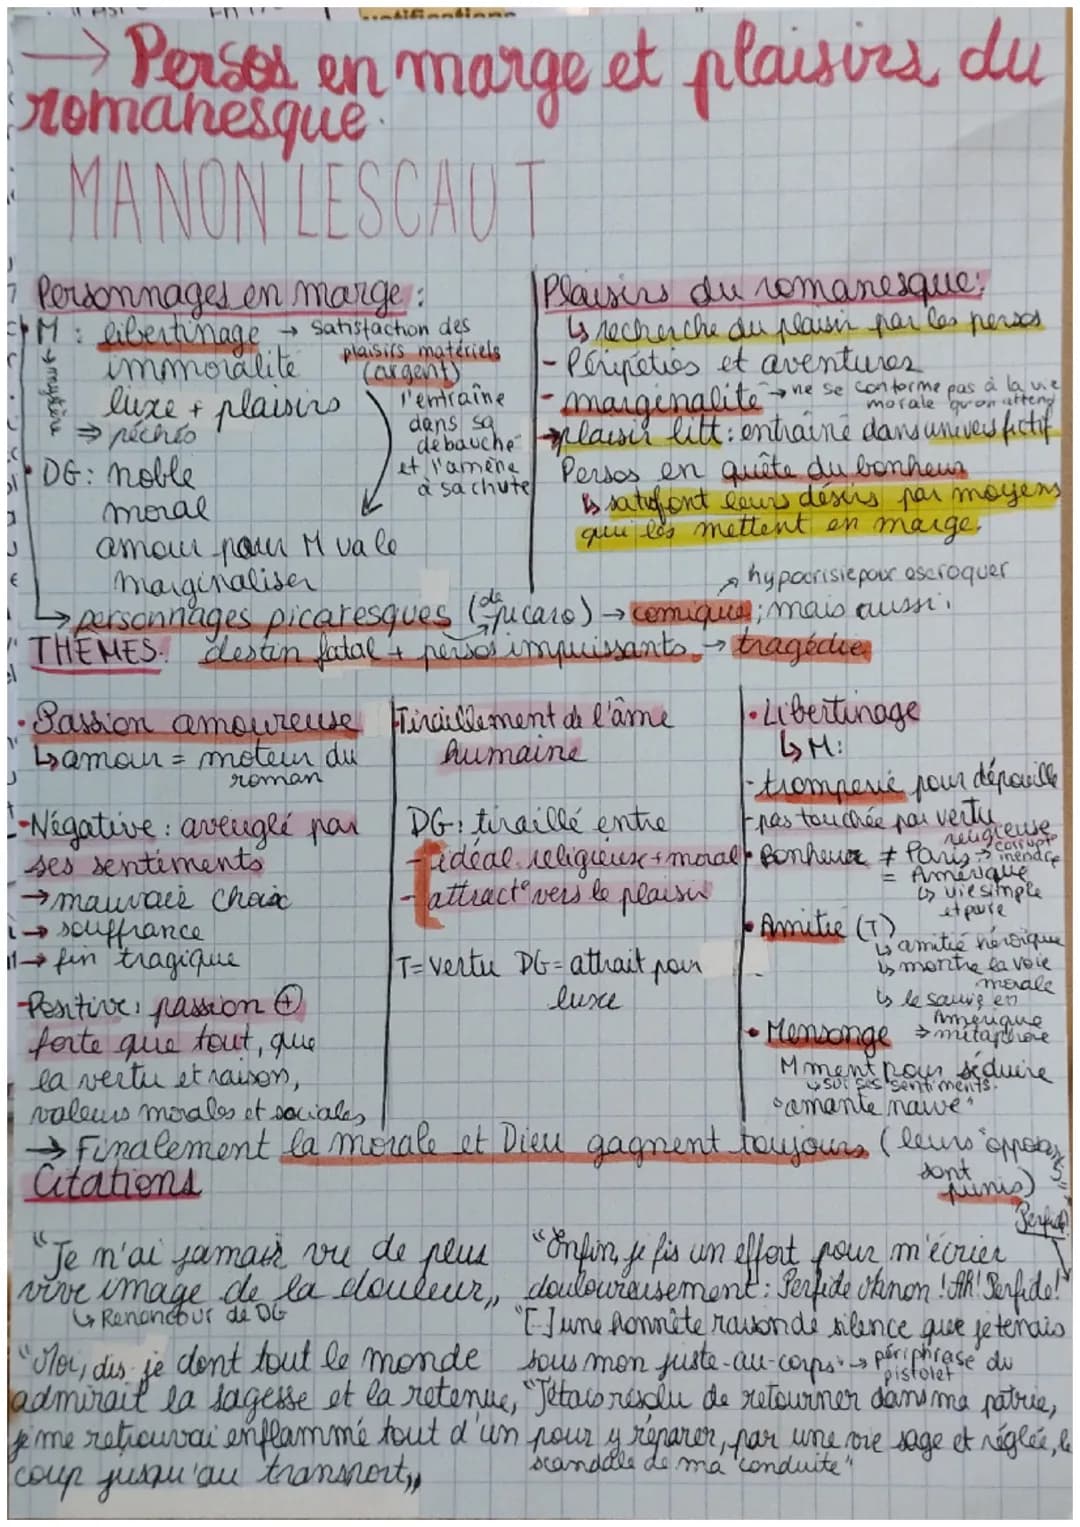 → Persos en marge et plaisirs du
romanesque.
MANON LESCAUT
Personnages en marge :
M : libertinage → satisfaction des
plaisirs matériels
(argent)
immoralité
luxe + plaisirs
⇒ péchés
→ mystère
l'entraîne
dans sa
débauche
et l'amène
à sa chute
• DG : noble
moral
amour pour M va le
marginaliser
↳ personnages picaresques (de picaro) → comique ; mais aussi :
→ hypocrisie pour escroquer
Plaisirs du romanesque :
↳ recherche du plaisir par les persos
- Péripéties et aventures
- marginalité → ne se conforme pas à la vie
morale qu'on attend
→ plaisir litt : entraîné dans univers fictif
Persos en quête du bonheur
↳ satisfont leurs désirs par moyens
qui les mettent en marge.
THÈMES : destin fatal + persos impuissants → tragédie
• Passion amoureuse
↳ amour = moteur du
roman
- Négative : aveuglé par
ses sentiments
→ mauvais choix
→ souffrance
→ fin tragique
- Positive : passion ⊕
forte que tout, que
la vertu et raison,
valeurs morales et sociales
• Tiraillement de l'âme
humaine
DG : tiraillé entre
- idéal religieux + moral
- attract° vers le plaisir
T = vertu DG = attrait pour
luxe
• Libertinage
↳ M :
- tromperie pour dépouille
- pas touchée par vertu
religieuse
• Bonheur ≠ Paris → corrupt°
= Amérique
↳ vie simple
et pure
• Amitié (T)
↳ amitié héroïque
↳ montre la voie
morale
↳ le suivre en
Amérique
• Mensonge → métaphore
M ment pour séduire
↳ sur ses sentiments.
"amante naïve"
→ Finalement la morale et Dieu gagnent toujours (leurs opposants
sont
punis)
Citations
Perfide
"Je n'ai jamais vu de plus
vive image de la douleur„
↳ Rencontre de DG
"Moi, dis-je dont tout le monde
admirait la sagesse et la retenue,
je me retrouvai enflammé tout d'un
coup jusqu'au transport„
"Enfin, je fis un effort pour m'écrier
douloureusement : Perfide Manon ! Ah ! Perfide !
"[-] une honnête raison de silence que je tenais
sous mon juste-au-corps" → périphrase du
pistolet
"J'étais résolu de retourner dans ma patrie,
pour y réparer, par une vie sage et réglée, le
scandale de ma conduite"